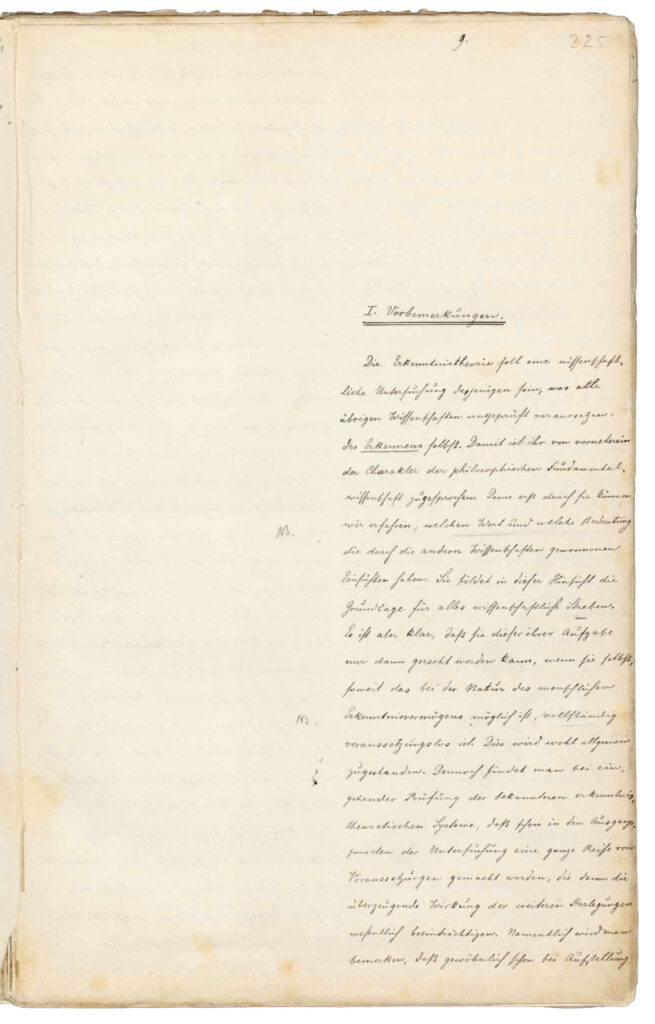 9.
225
I. Vorbemerkungen.
Die Erkenntnistheorie soll eine wissenschaft-
liche Untersuchung desjenigen sein, was alle
übrigen Wissenschaften ungeprüft voraussetzen:
des Erkennens selbst. Damit ist ihr von vorneherein
der Charakter der philosophischen Fundamental-
wissenschaft zugesprochen. Denn erst durch sie können
wir erfahren, welchen Wert und welche Bedeutung
NB.
die durch die andern Wissenschaften gewonnenen
Einsichten haben. Sie bildet in dieser Hinsicht die
Grundlage für alles wissenschaftliche Streben.
Es ist aber klar, daß sie dieser ihrer Aufgabe
nur dann gerecht werden kann, wenn sie selbst,
soweit das bei der Natur des menschlichen
NB.
Erkenntnisvermögens möglich ist, vollständig
voraussetzungslos ist. Dies wird wohl allgemein
zugestanden. Dennoch findet man bei ein-
gehender Prüfung der bekannteren erkenntnis-
theoretischen Systeme, daß schon in den Ausgangs-
punkten der Untersuchung eine ganze Reihe von
Voraussetzungen gemacht werden, die dann die
überzeugende Wirkung der weiteren Darlegungen
wesentlich beeinträchtigen. Namentlich wird man
bemerken, daß gewöhnlich schon bei Aufstellung